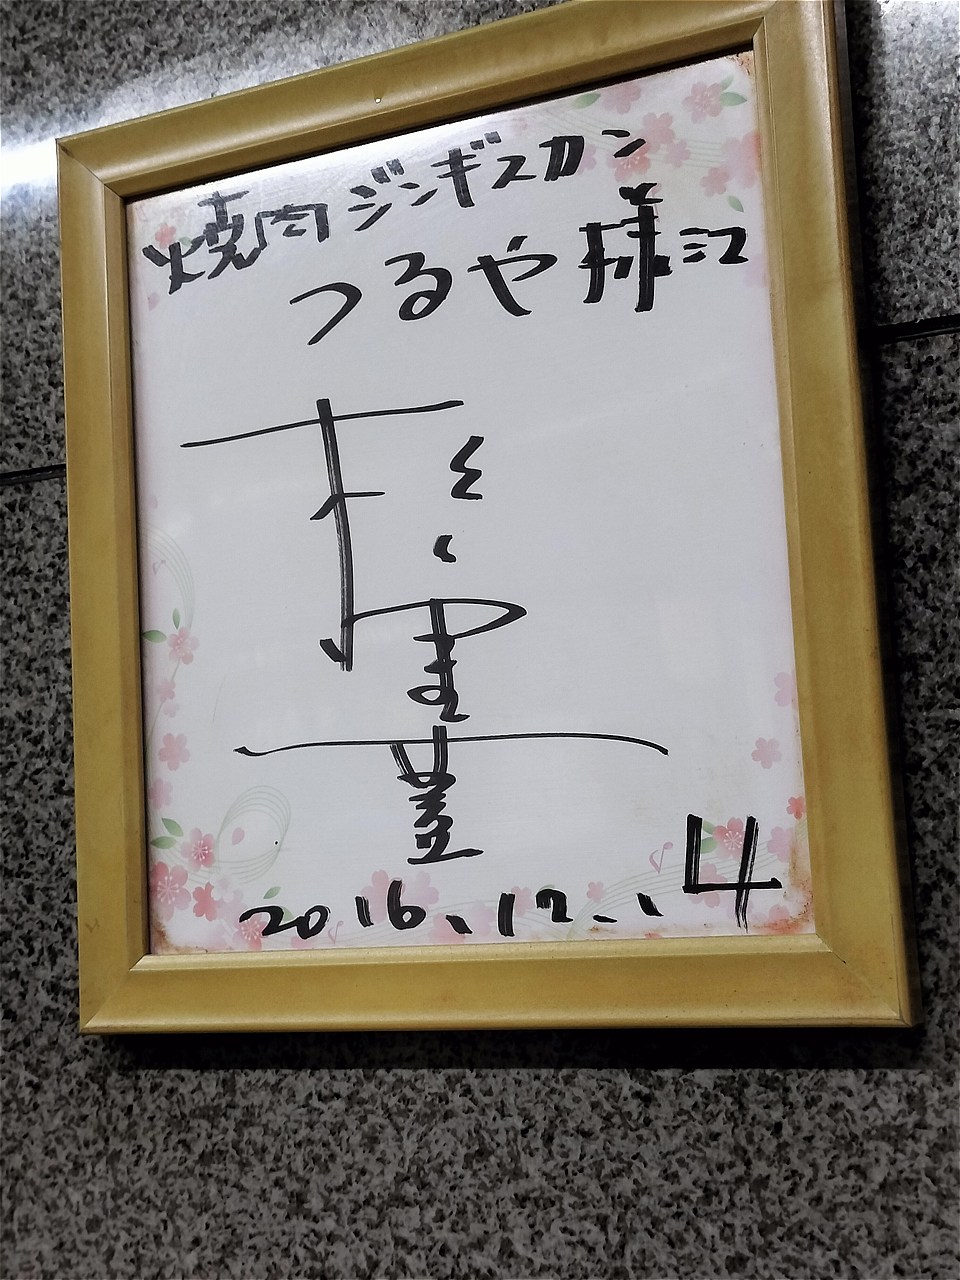 焼肉ジンギスカン
つるや様江
松重豊
2016.12.14